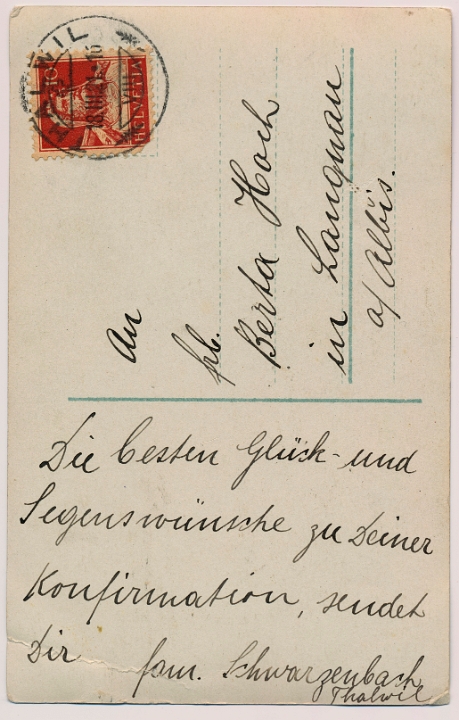 THALWIL
18.III.21.-15
HELVETIA
An
frl.
Berta Hoch
in Langnau
a/Albis.
Die besten Glück- und
Segenswünsche zu Deiner
Konfirmation, sendet
Dir fam. Schwarzenbach
Thalwil